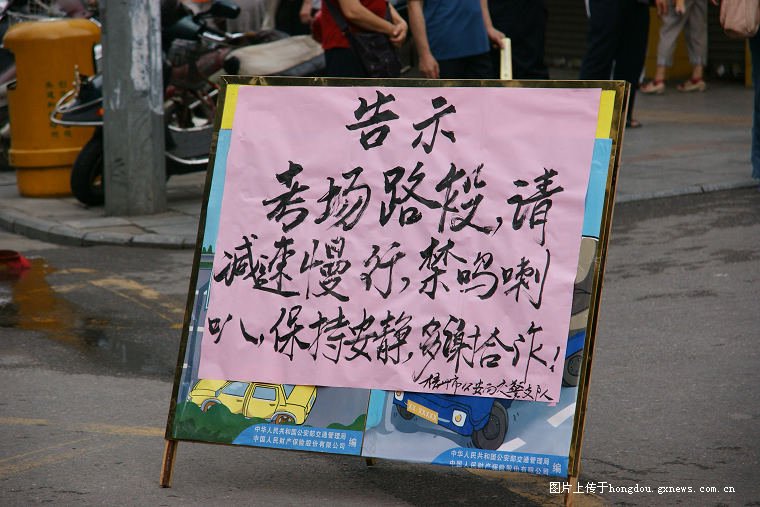 告示
考场路段,请
减速慢行,禁鸣喇
叭,保持安静,多谢合作!
梧州市公安局交警支队
中华人民共和国公安部交通管理局
中国人民财产保险股份有限公司 编
中华人民共和国公安部交通管理局
中国人民财产保险股份有限公司 编
图片上传于hongdou.gxnews.com.cn